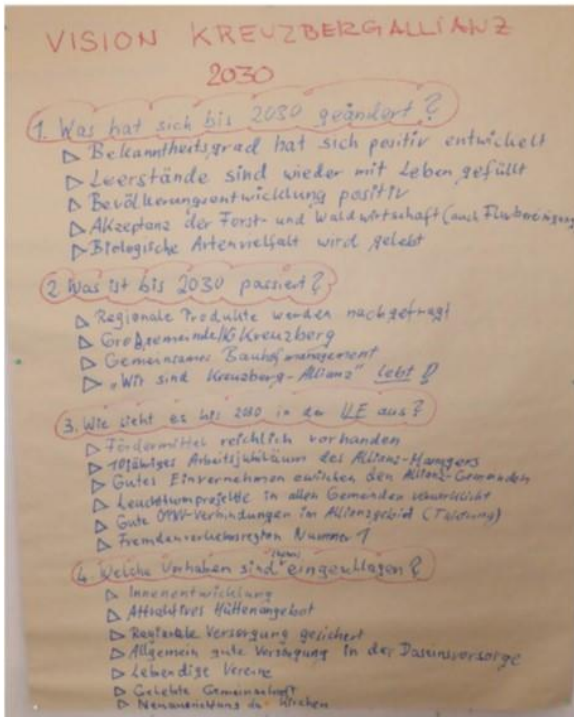 VISION KREUZBERGALLIANZ
2030
1. Was hat sich bis 2030 geändert?
▷ Bekanntheitsgrad hat sich positiv entwickelt
▷ Leerstände sind wieder mit Leben gefüllt
▷ Bevölkerungsentwicklung positiv
▷ Akzeptanz der Forst- und Waldwirtschaft (auch Flurbereinigung
▷ Biologische Artenvielfalt wird gelebt
2. Was ist bis 2030 passiert?
▷ Regionale Produkte werden nachgefragt
▷ Großgemeinde/ Kreuzberg
▷ Gemeinsames Bauhofmanagement
▷ "Wir sind Kreuzberg-Allianz" lebt!
3. Wie sieht es bis 2030 in der ILE aus?
▷ Fördermittel reichlich vorhanden
▷ 10jähriges Arbeitsjubiläum des Allianz-Managers
▷ Gutes Einvernehmen zwischen den Allianz-Gemeinden
▷ Leuchtturmprojekte in allen Gemeinden verwirklicht
▷ Gute ÖPNV-Verbindungen im Allianzgebiet (Taktung)
▷ Fremdenverkehrsregion Nummer 1
4. Welche Vorhaben sind eingeschlagen?
▷ Innenentwicklung
▷ Attraktives Hüttenangebot
▷ Regionale Versorgung gesichert
▷ Allgemein gute Versorgung in der Daseinsvorsorge
▷ Lebendige Vereine
▷ Gelebte Gemeinschaft
▷ Neuausrichtung der Kirchen